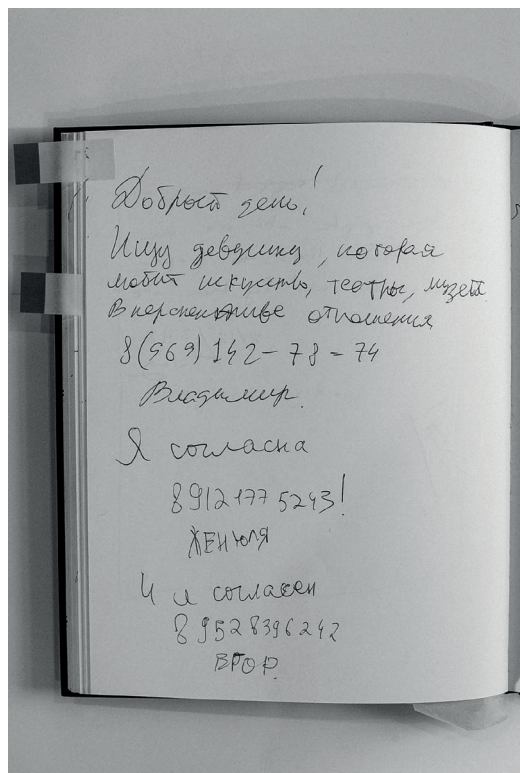 Добрый день!
Ищу девушку, которая
любит искуство, театры, музеи.
В перспективе отношения
8(969)142-78-74
Владимир.
Я согласна
89121775243!
ЖЕНЮЛЯ
И я согласен
89528396242